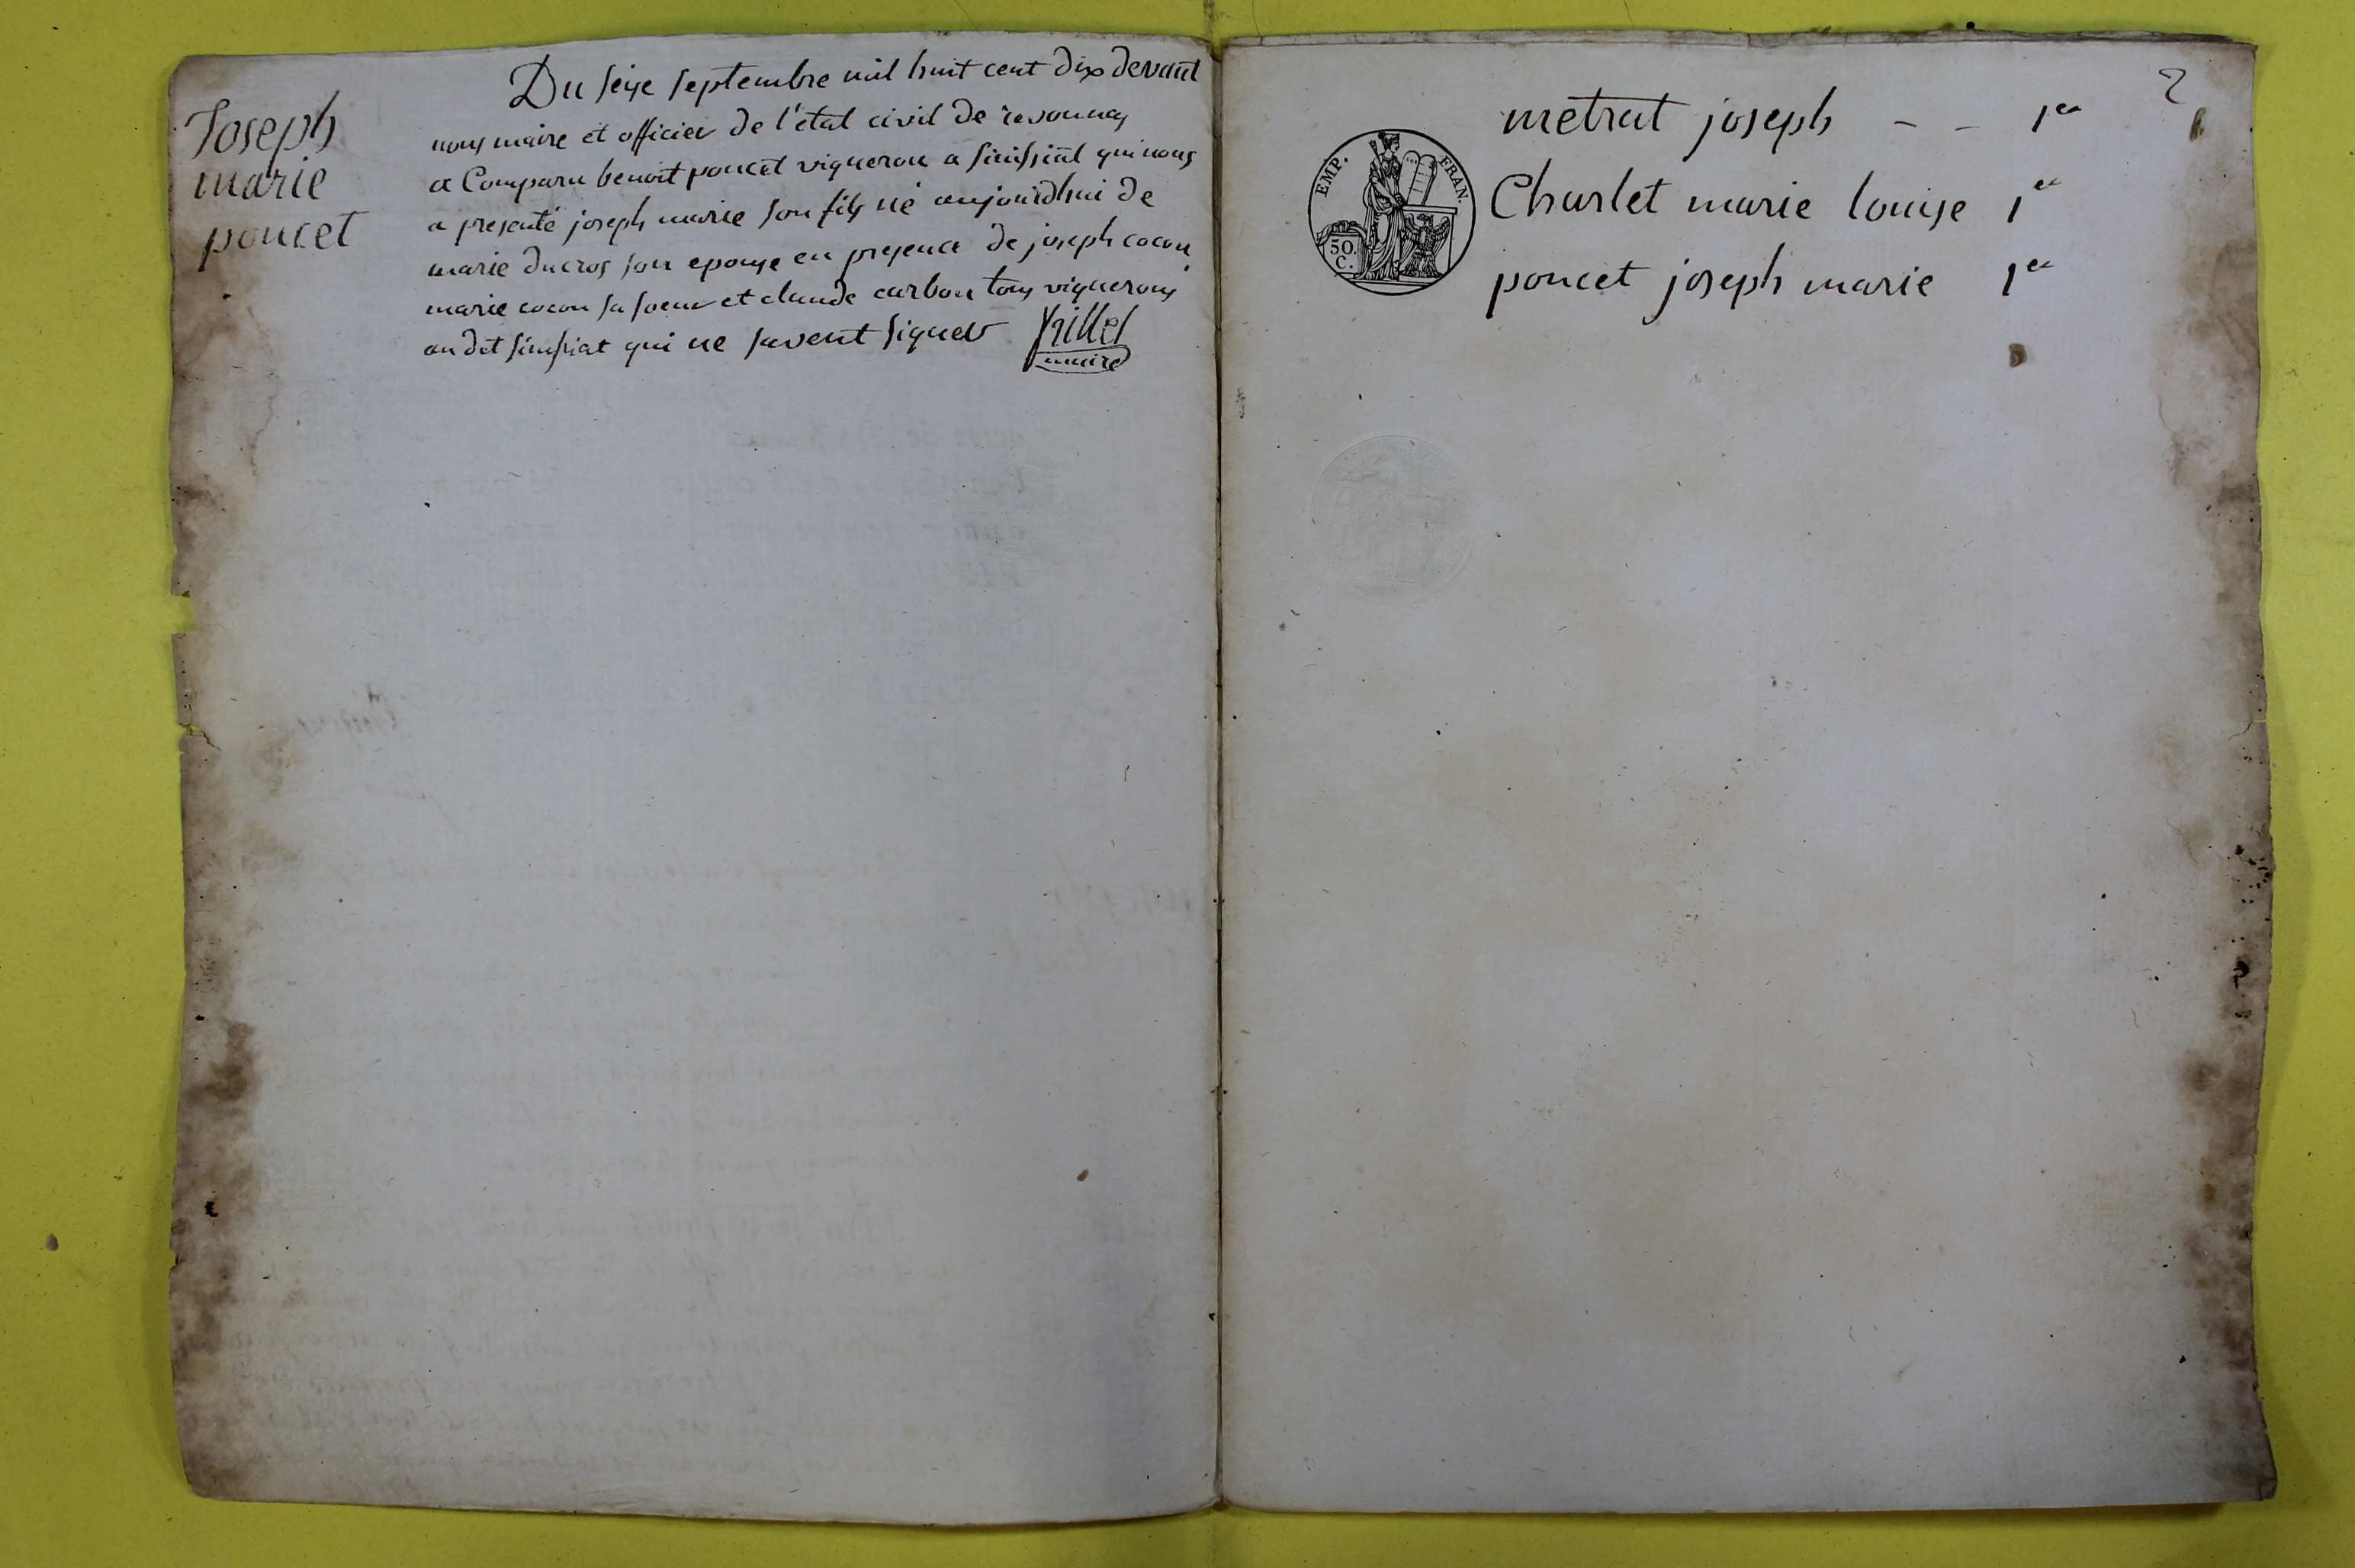 Joseph
marie
poncet
Du seize septembre mil huit cent dix devant
nous maire et officier de l'état civil de revonnas
a Comparu benoit poncet vigneron a simsiat qui nous
a presenté joseph marie son fils né aujourdhui de
marie ducros son epouse en presence de joseph cocon
marie cocon sa soeur et claude carbon tous vignerons
au dit simsiat qui ne savent signer
maire
2
metrat joseph - - 1er
Charlet marie louise 1er
poncet joseph marie 1er
EMP. FRAN.
50
C.